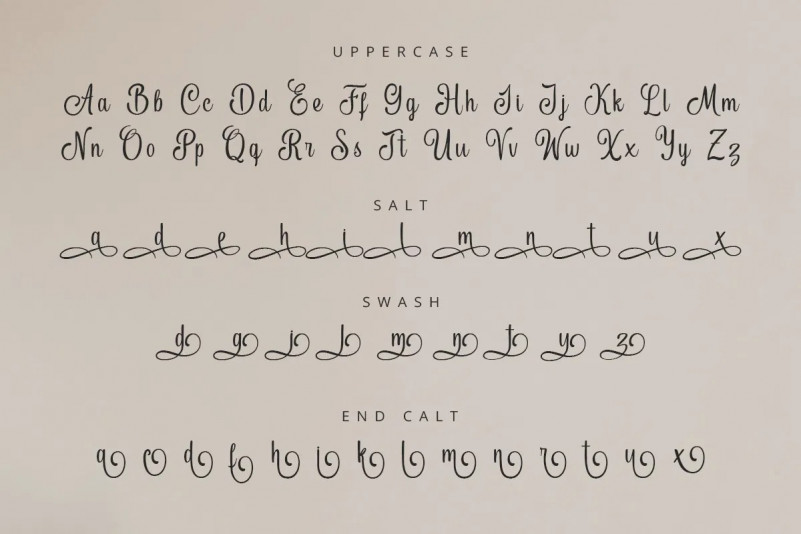 UPPERCASE
Aa Bb Cc Dd Ee Ff Gg Hh Ii Jj Kk Ll Mm
Nn Oo Pp Qq Rr Ss Tt Uu Vv Ww Xx Yy Zz
SALT
a d e h i l m n t u x
SWASH
d g j l m n t y z
END CALT
a c d f h i k l m n r t u x